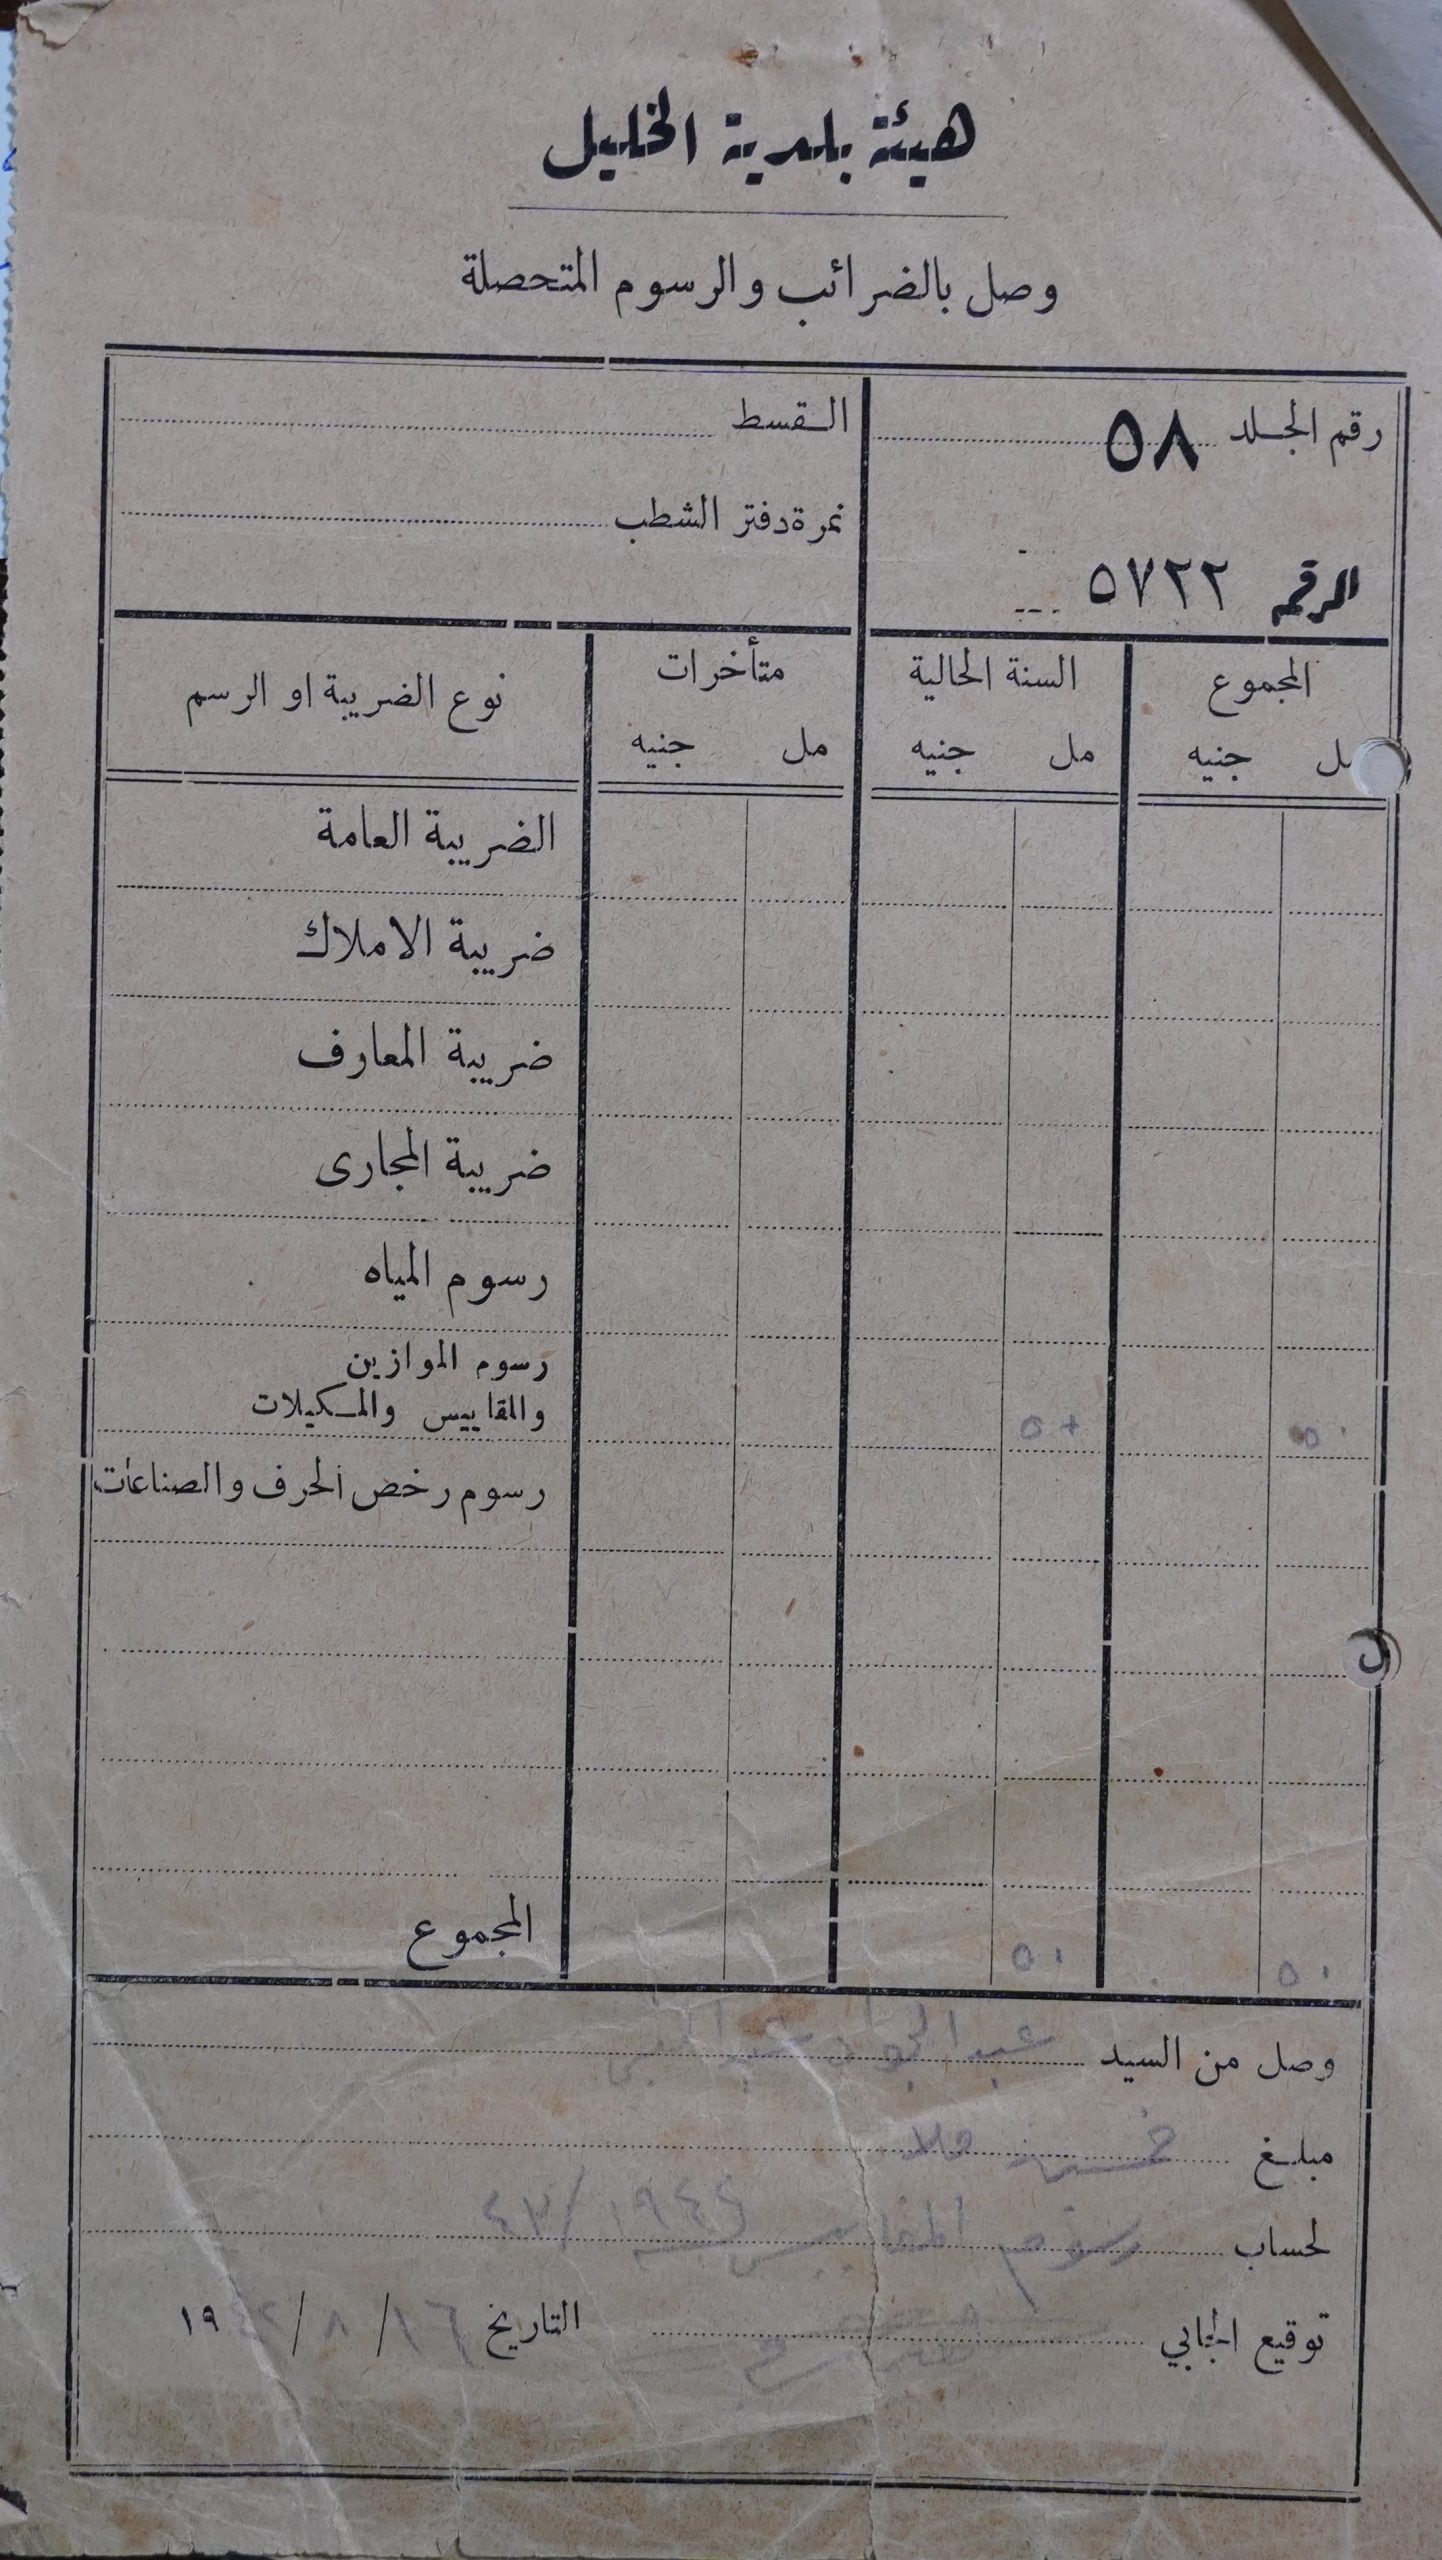 هيئة بلدية الخليل
وصل بالضرائب والرسوم المتحصلة
رقم الجلد ٥٨
القسط
نمرة دفتر الشطب
الرقم ٥٧٢٢
المجموع السنة الحالية متأخرات نوع الضريبة او الرسم
مل جنيه مل جنيه مل جنيه
الضريبة العامة
ضريبة الاملاك
ضريبة المعارف
ضريبة المجارى
رسوم المياه
رسوم الموازين
والمقاييس والمكيلات ٥٠ ٥٠
رسوم رخص الحرف والصناعات
المجموع ٥٠ ٥٠
وصل من السيد عبد الجواد عبد النبي
مبلغ خمسون ملا
لحساب رسوم المقاييس
توقيع الجابي التاريخ ١٦ / ٨ / ١٩٤٢